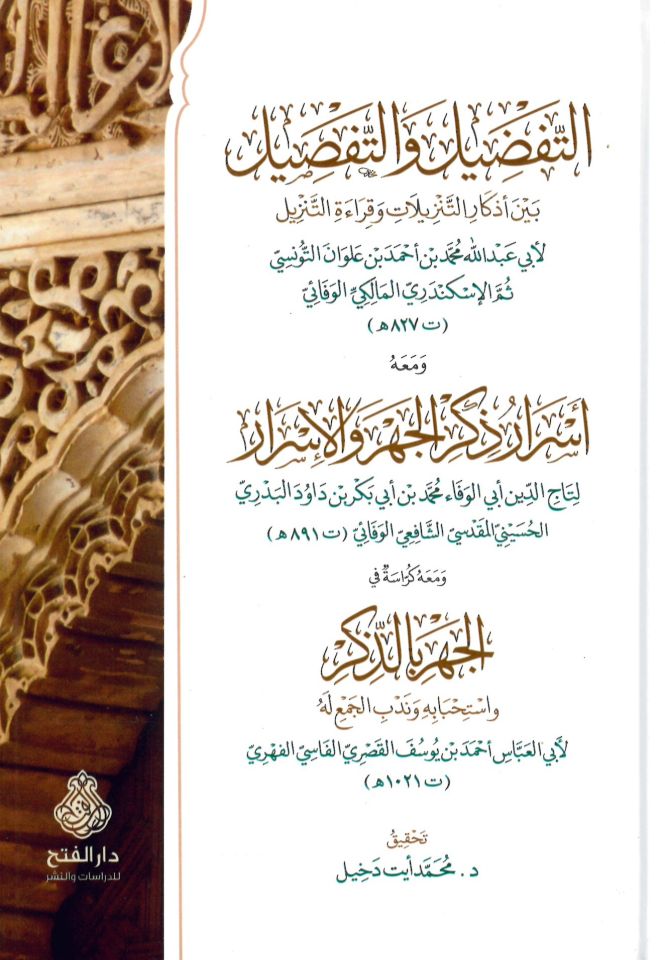 التَّفْضِيل وَالتَّفْصِيل
بَيْنَ أَذْكَارِ التَّنْزِيلَاتِ وَقِرَاءَةِ التَّنْزِيل
لأَبِي عَبْدِ اللهِ مُحَمَّدِ بْنِ أَحْمَدَ بْنِ عَلْوَانَ التُّونُسِيِّ
ثُمَّ الإِسْكَنْدَرِيِّ المَالِكِيِّ الوَفَائِيِّ
(ت ٨٢٧ هـ)
وَمَعَهُ
أَسْرَارُ ذِكْرِ الجَهْرِ وَالإِسْرَار
لِتَاجِ الدِّينِ أَبِي الوَفَاء مُحَمَّدِ بْنِ أَبِي بَكْرِ بْنِ دَاوُدَ البَدْرِيِّ
الحُسَيْنِيِّ المَقْدِسِيِّ الشَّافِعِيِّ الوَفَائِيِّ (ت ٨٩١ هـ)
وَمَعَهُ كُرَّاسَةٌ فِي
الجَهْرِ بِالذِّكْرِ
وَاسْتِحْبَابِهِ وَنَدْبِ الجَمْعِ لَهُ
لأَبِي العَبَّاسِ أَحْمَدَ بْنِ يُوسُفَ القَصْرِيِّ الفَاسِيِّ الفِهْرِيِّ
(ت ١٠٢١ هـ)
تَحْقِيقُ
د. مُحَمَّد أَيْت دَخِيل
دار الفتح
للدراسات والنشر